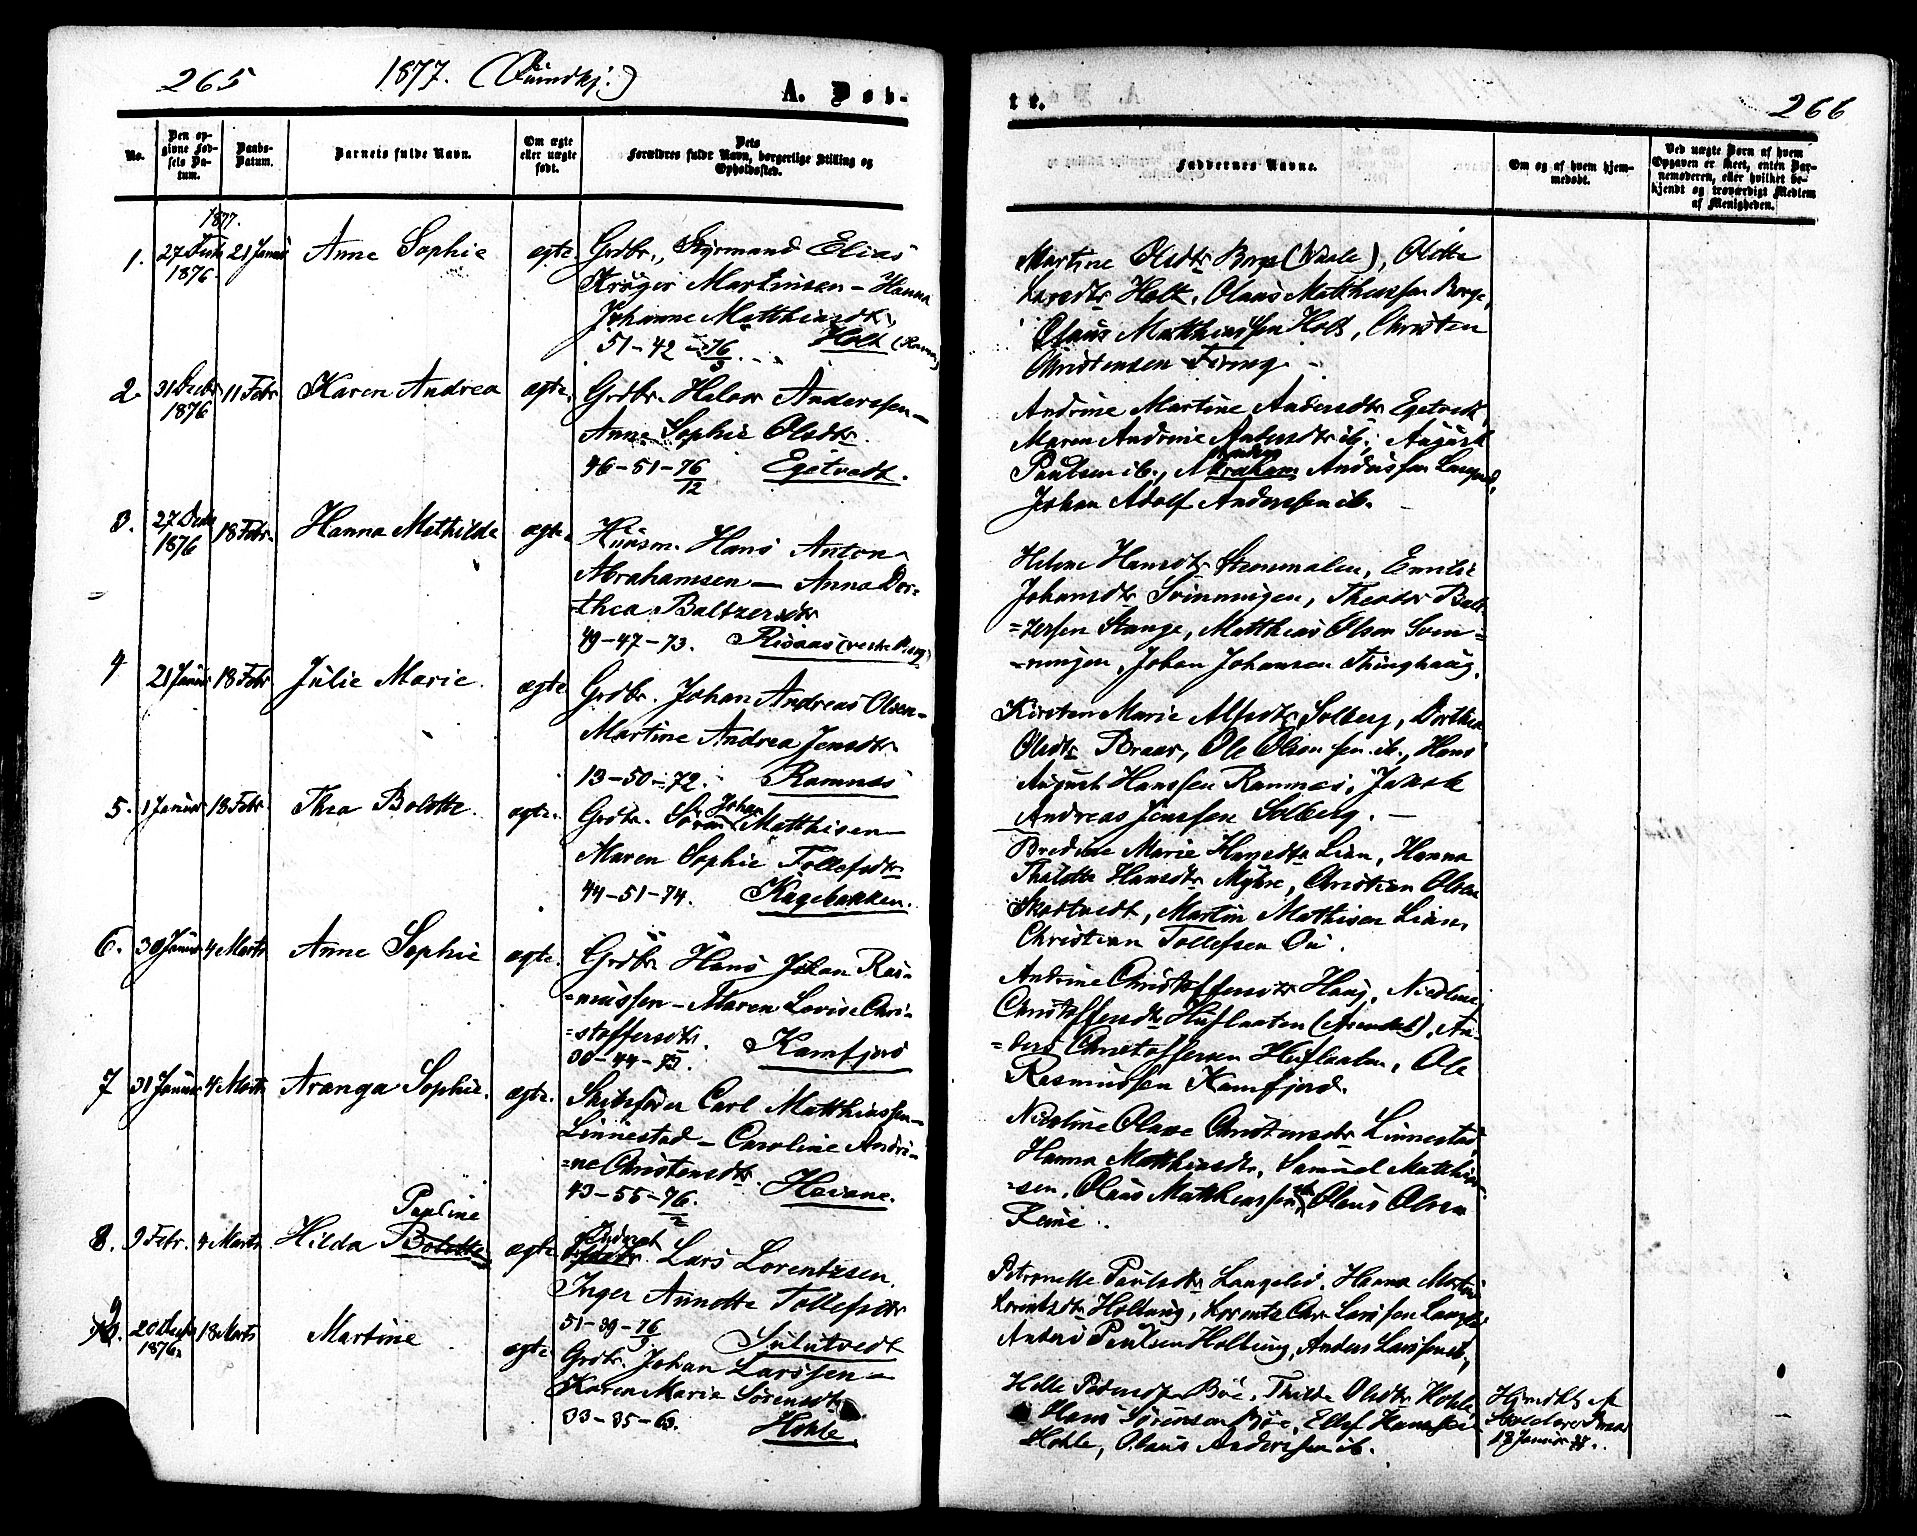 265
1877.
A. Døb-
No.
Den op-
givne Fød-
sels Da-
tum.
Daabs-
Datum.
Barnets fulde Navn.
Om ægte
eller uægte
født.
Dets
Forældres fulde Navn, borgerlige Stilling og
Opholdssted.
1877.
1. 27 1876 21 Januar Anne Sophie ægte Grdbr., Styrmand Elias
Krøger Martinsen – Hanna
Johanne Matthiasdtr
51–42–76/3 Holt
2. 31 Decbr 1876 11 Febr Karen Andrea ægte. Grdbr. Halvor Anderssen –
Anne Sophie Olsdtr.
46–51–76/12 Egetvedt.
3. 27 Decbr 1876 18 Febr. Hanna Mathilde ægte. Huusm. Hans Anton
Abrahamsen – Anna Dor-
thea Baltzersdtr
49–47–73. Risaas
4 21 Januar 18 Febr Julie Marie. ægte Grdbr. Johan Andreas Olsen –
Martine Andrea Jensdtr
13–50–72. Ramnæs
5. 1 Januar 18 Febr. Thea Bolette. ægte. Grdbr. Søren Johan Matthisen –
Maren Sophie Tollefsdtr
44–51–74. Kagebakken.
6. 30 Januar 4 Marts Anne Sophie ægte. Grdbr Hans Johan Ras-
=mussen – Maren Lovise Chri-
=stoffersdtr.
30–44–73. Kamfjord
7 31 Januar 4 Marts Aranga Sophie. ægte. Skibsfører Carl Matthiassen
Linnestad – Caroline Andri-
=ne Christensdtr.
43–55–76/2 Havane.
8. 9 Febr. 4 Marts Hilda Bolette Pauline ægte Lars Lorentzsen.
Inger Annette Tollefsdtr
51–39–76 Sulutvedt
9. 20 Decbr 1876. 18 Marts Martine ægte Grdbr. Johan Larssen –
Karen Maria Sørensdtr
33–35–63. Hohle
te.
266
Faddernes Navne.
Om og af hvem hjem-
medøbt.
Ved uægte Børn af hvem
Opgaven er skeet, enten Bar-
nemoderen, eller hvilket be-
kjendt og troværdigt Medlem
af Menigheden.
Martine Olsdtr Borge Olette
Larsdtr Holt, Olaus Matthiassen Borge,
Olaus Matthiassen Holt, Christen
Christensen
Andrine Martine Andersdtr Egetvedt,
Maren Andrine Andersdtr ib., August
Paulsen ib., Anderssen
Johan Adolf Anderssen ib.
Helene Hansdtr Emilie
Johansdtr Svinningen, Theodor Balt-
=zersen Stange, Matthias Olsen Svin-
=ningen, Johan Johansen Thinghaug.
Kirsten Marie Alfsdtr Solberg, Dorthea
Olsdtr Braar, Ole Olsen ib., Hans
August Hanssen Ramnæs, Jakob
Andreas Jenssen Solberg. –
Bredine Marie Hansdtr Lian, Hanna
Hansdtr Myhre, Christian Olsen
Skartvedt, Martin Mathisen Lian,
Christian Tollefsen
Andrine Christoffersdtr Haug, Nicoline
Christoffersdtr Huflaaten An-
=ders Christoffersen Huflaaten, Ole
Rasmussen Kamfjord.
Nicoline Olava Christensdtr Linnestad,
Hanna Matthiasdtr, Samuel Matthias-
=sen, Olaus Matthiassen Olaus Olsen
Petronelle Paulsdtr Langelid. Hanna
Lorentsdtr Holtung, Lorents Chr. Larssen
Anders Paulsen Holtung, Anders Larssen ib.
Helle Pedersdtr Bøe, Thilda Olsdtr Hohle,
Hans Sørensen Bøe, Ellef Hanssen
Hohle, Olaus Anderssen ib.
Hjemdbt af
18 Januar